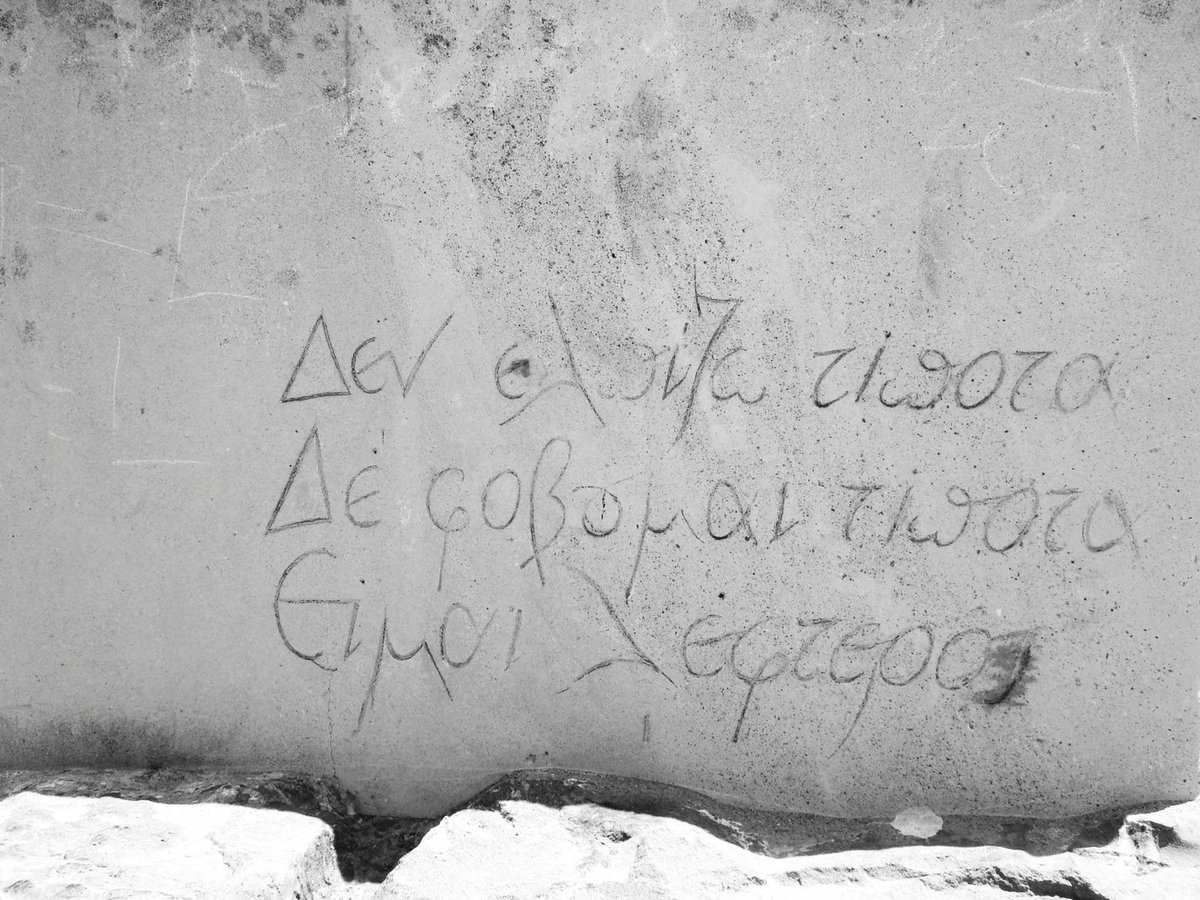 Δεν ελπίζω τίποτα
Δέ φοβούμαι τίποτα
Είμαι λεφτερος